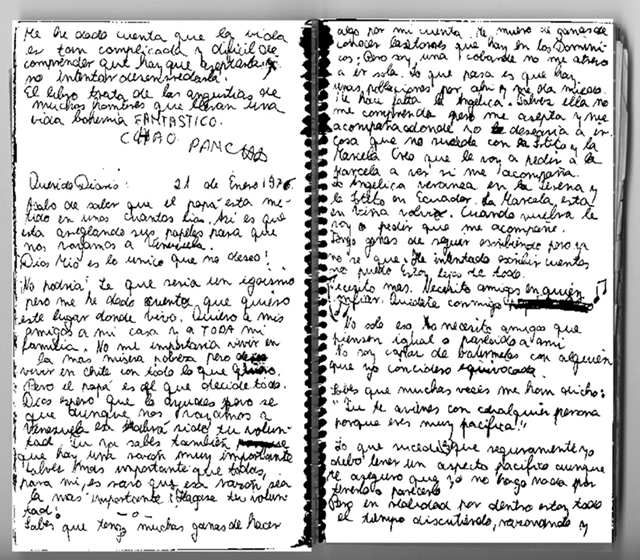 Me he dado cuenta que la vida
es tan complicada y dificil de
comprender que hay que aceptarla y
no intentar desenredarla.
El libro trata de las angustias de
muchos hombres que llevan una
vida bohemia FANTASTICO.
CHAO PANCHO
Querido Diario: 21 de Enero 1976.
Acabo de saber que el papá esta me-
tido en unos cuantos lios. Asi es que
esta arreglando sus papeles para que
nos vayamos a Venezuela.
Dios Mio es lo unico que no deseo!
¡No podria! Se que seria un egoismo
pero me he dado cuenta, que quiero
este lugar donde vivo. Quiero a mis
amigos a mi casa y a TODA mi
familia. No me importaria vivir en
la mas misera pobreza pero
vivir en chile con todo lo que quiero.
Pero el papá es el que decide todo.
Dios espero que lo ayudes pero se
que aunque nos vayamos a
Venezuela es habra sido tu volun-
tad. Tu ya sabes tambien
que hay una razon muy importante
talves mas importante que todas,
para mi, es raro que esa razón sea
la mas importante ¡Hagase tu volun-
tad!
-o-
Sabes que tengo muchas ganas de hacer
algo por mi cuenta. Me muero de ganas de
conocer las torres que hay en los Domini-
cos. Pero soy una cobarde no me atrevo
a ir sola. Lo que pasa es que hay
unas poblaciones por ahi y me da miedo.
Me hace falta la Angelica. Talvez ella no
me comprenda pero me acepta y me
acompaña donde yo le desearia a ir
cosa que no sucede con la Titi y la
Marcela Creo que le voy a pedir a la
Marcela a ver si me acompaña.
La Angelica veranea en la Serena y
la Titi en Ecuador. La Marcela esta
en viña volvio. Cuando vuelva le
voy a pedir que me acompañe.
Tengo ganas de seguir escribiendo pero ya
no se que. He intentado escribir cuentos
no puedo Estoy lejos de todo.
Necesito mas. Necesito amigos en quien
confiar. Quedate conmigo
No solo eso. Yo necesito amigos que
piensen igual o parecido a mi
No soy capaz de batirmelas con alguien
que yo considero equivocada.
Sabes que muchas veces me han dicho:
"Tu te avienes con cualquier persona
porque eres muy pacifica."
Lo que sucede es que seguramente yo
debo tener un aspecto pacifico aunque
te aseguro que yo no hago nada por
tenerlo o parecerlo
Pero en realidad por dentro estoy todo
el tiempo discutiendo, razonando y